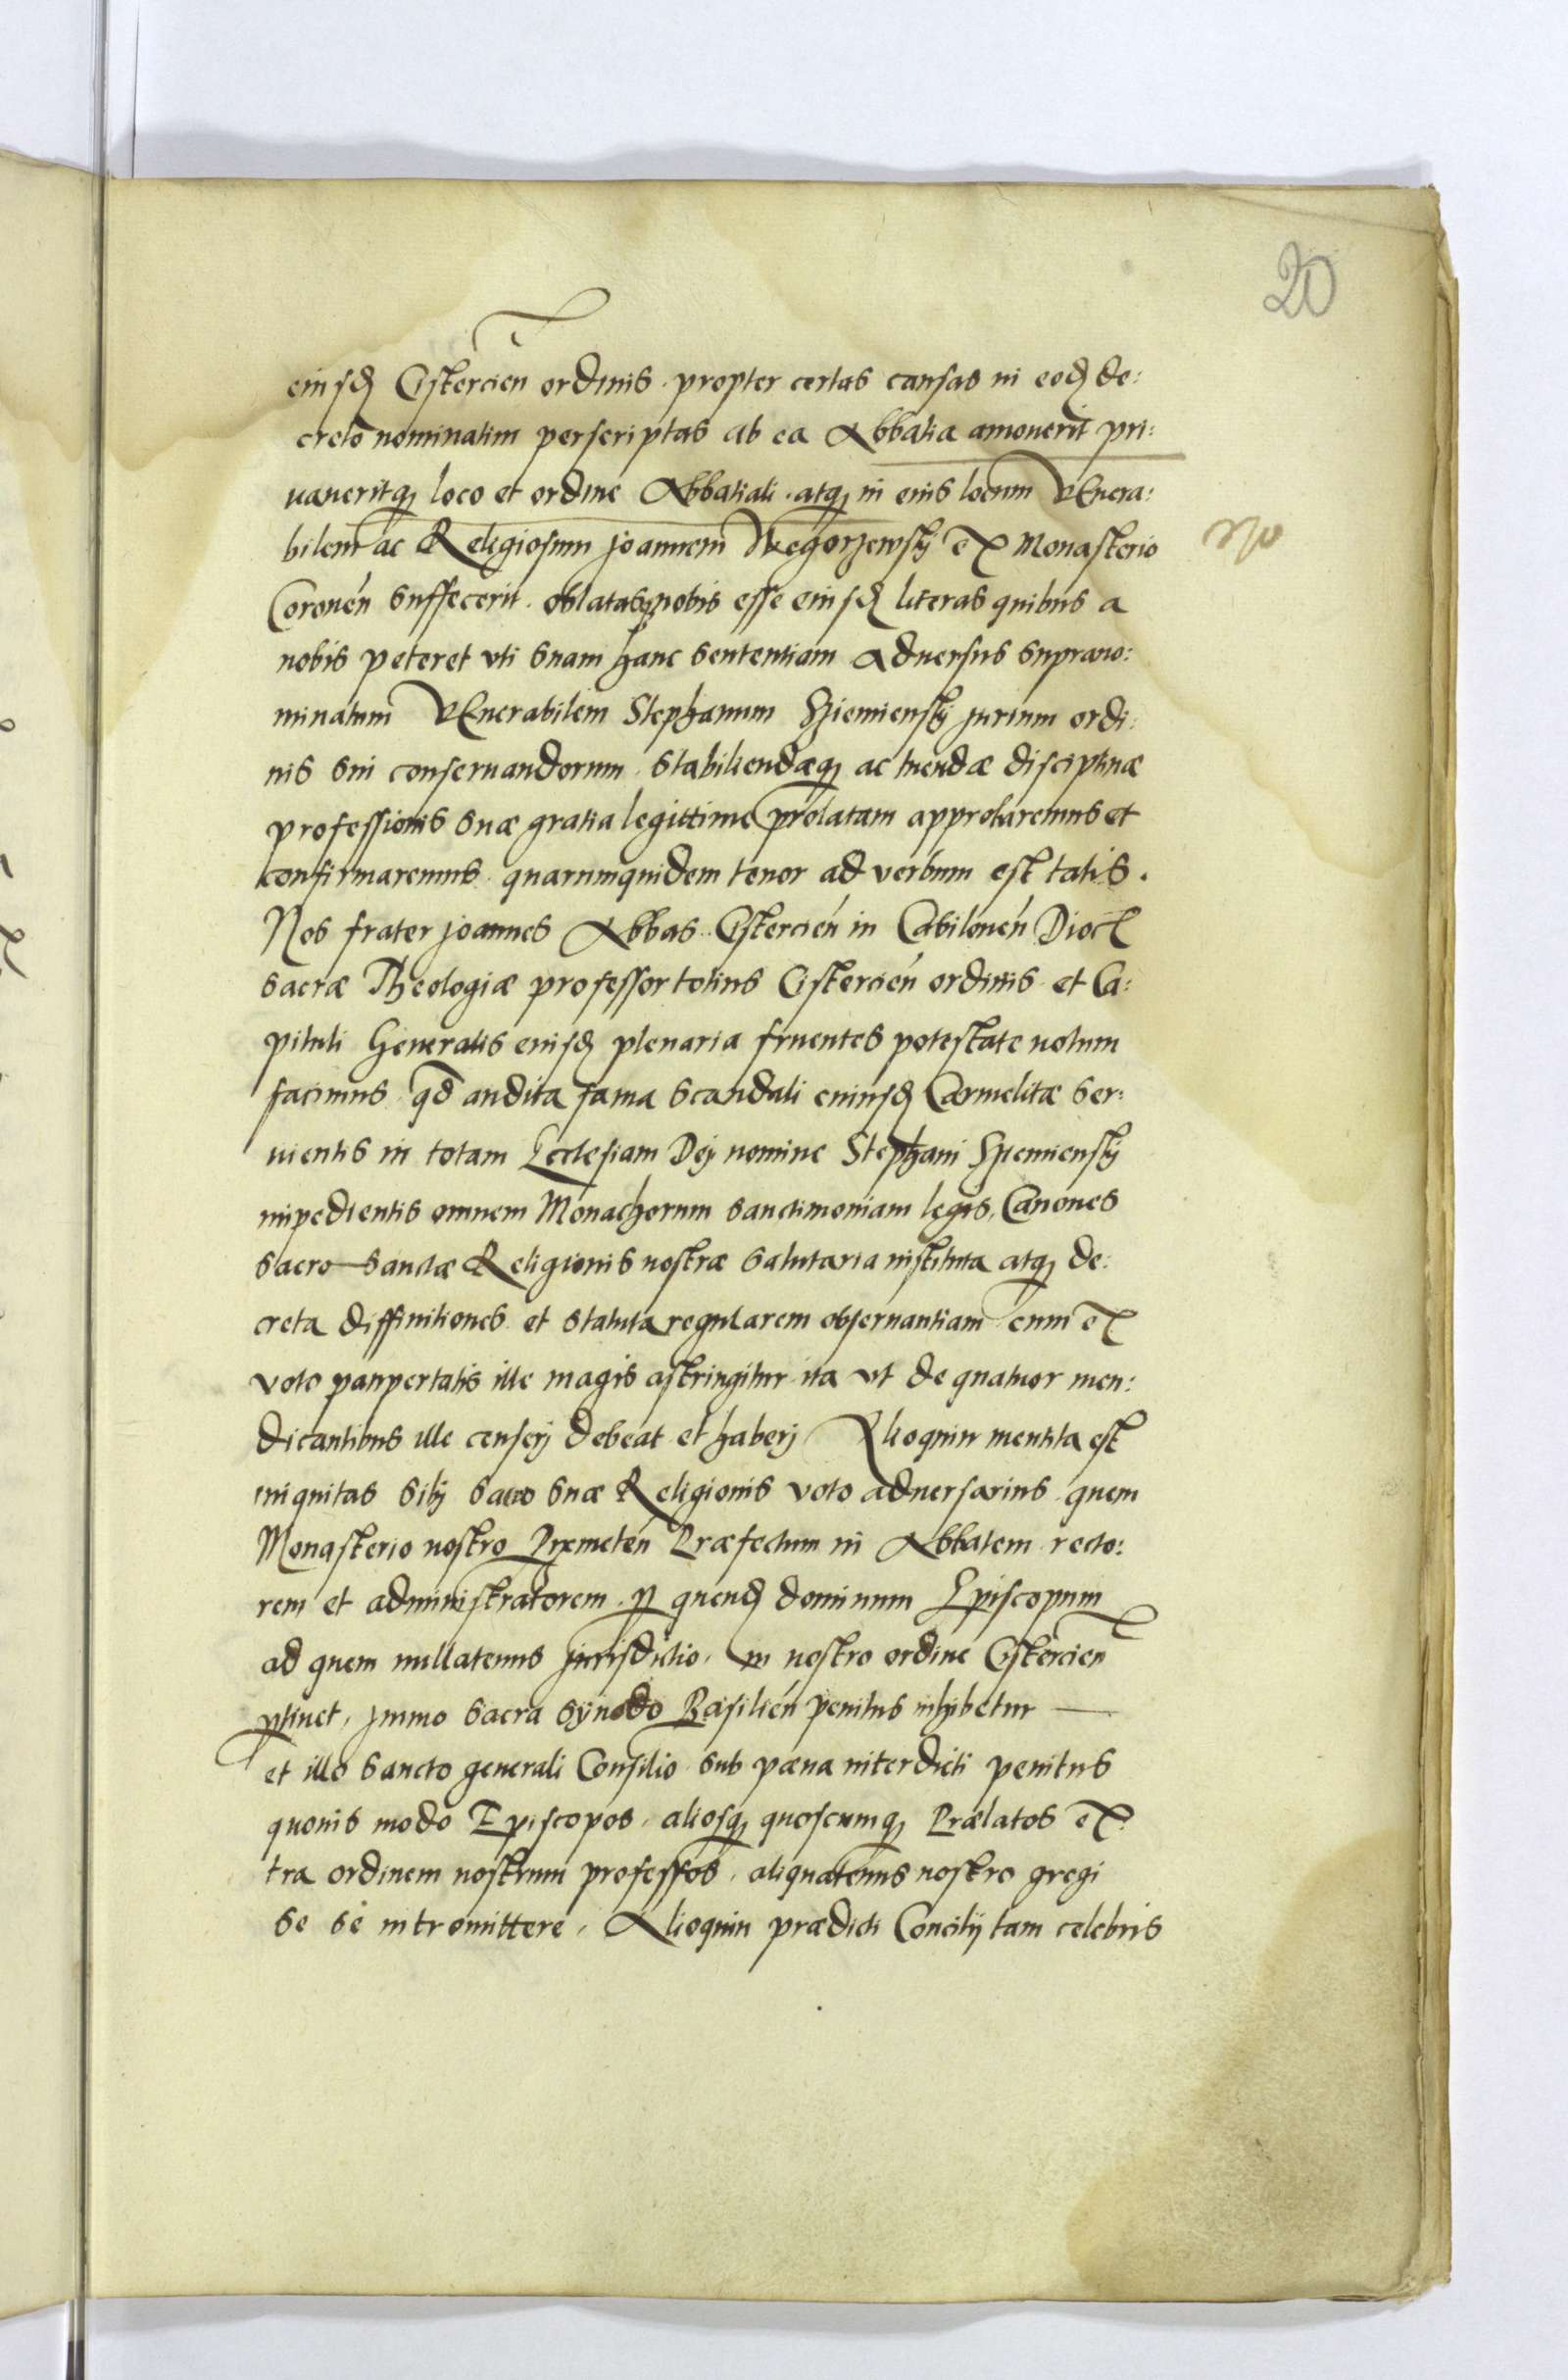 20
eiusd Cistercien ordinis. propter certas causas in eod de:
creto nominatim perscriptas ab ea Abbatia amouerit pri:
uaueritq loco et ordine Abbatiali. atq in eius locum VEnera:
bilem ac Religiosum Joannem Wegorzewsky ex Monasterio
Coronén suffecerit. oblatasq nobis esse eiusd literas quibus a
nobis peteret vti suam hanc sententiam Aduersus suprano:
minatum VEnerabilem Stephanum Sziemiensky jurium ordi:
nis sui conseruandorum. stabiliendæq ac tuendæ disciplinæ
professionis suæ gratia legittime prolatam approbaremus et
confirmaremus. quarumquidem tenor ad verbum est talis.
Nos frater Joannes Abbas. Cistercién in Cabilonén Dioc
sacræ Theologiæ professor totius Cistercién ordinis et Ca:
pituli Generalis eiusd plenaria fruentes potestate notum
facimus. qd audita fama scandali cuiusd Carmelitæ ser:
uientis in totam Ecclesiam Dej nomine Stephani Sziemiensky
impedientis omnem Monachorum sanctimoniam legis. Canones
sacro-sanctæ Religionis nostræ salutaria instituta atq de:
creta diffinitiones et statuta regularem obseruantiam cum ex
voto paupertatis ille magis astringitur ita vt de quatuor men:
dicantibus ille censerj debeat et haberj Alioquin mentita est
iniquitas sibj sacro suæ Religionis voto aduersarius. quem
Monasterio nostro Przemetén Præfectum in Abbatem recto:
rem et administratorem. p quend dominum Episcopum
ad quem nullatenus jurisdictio, in nostro ordine Cistercien
ptinet, jmmo sacra synodo Basilién penitus inhibetur —
et illo sancto generali Consilio sub pæna interdicti penitus
quouis modo Episcopos, aliosq quoscumq Prælatos ex
tra ordinem nostrum professos, aliquatenus nostro gregi
se se intromittere, Alioquin prædicti Concilij tam celebris